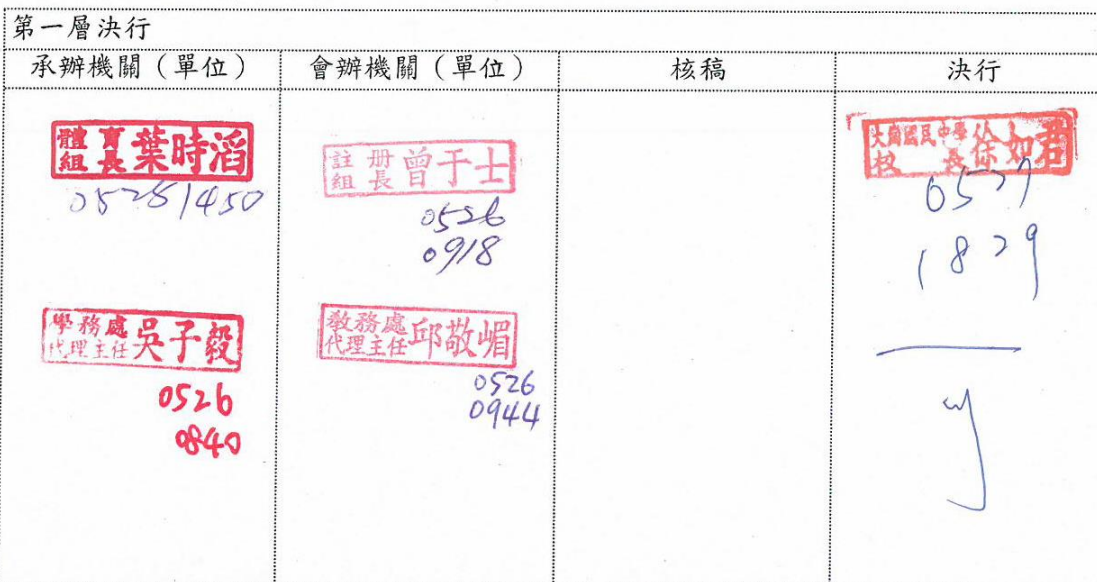 第一層決行
承辦機關（單位）
會辦機關（單位）
核稿
決行
體育組長 葉時滔
05251450
學務處代理主任 吳子毅
0526
0840
註冊組長 曾于士
0526
0918
教務處代理主任 邱敬嵋
0526
0944
國民中學校長 徐如君
0527
1829